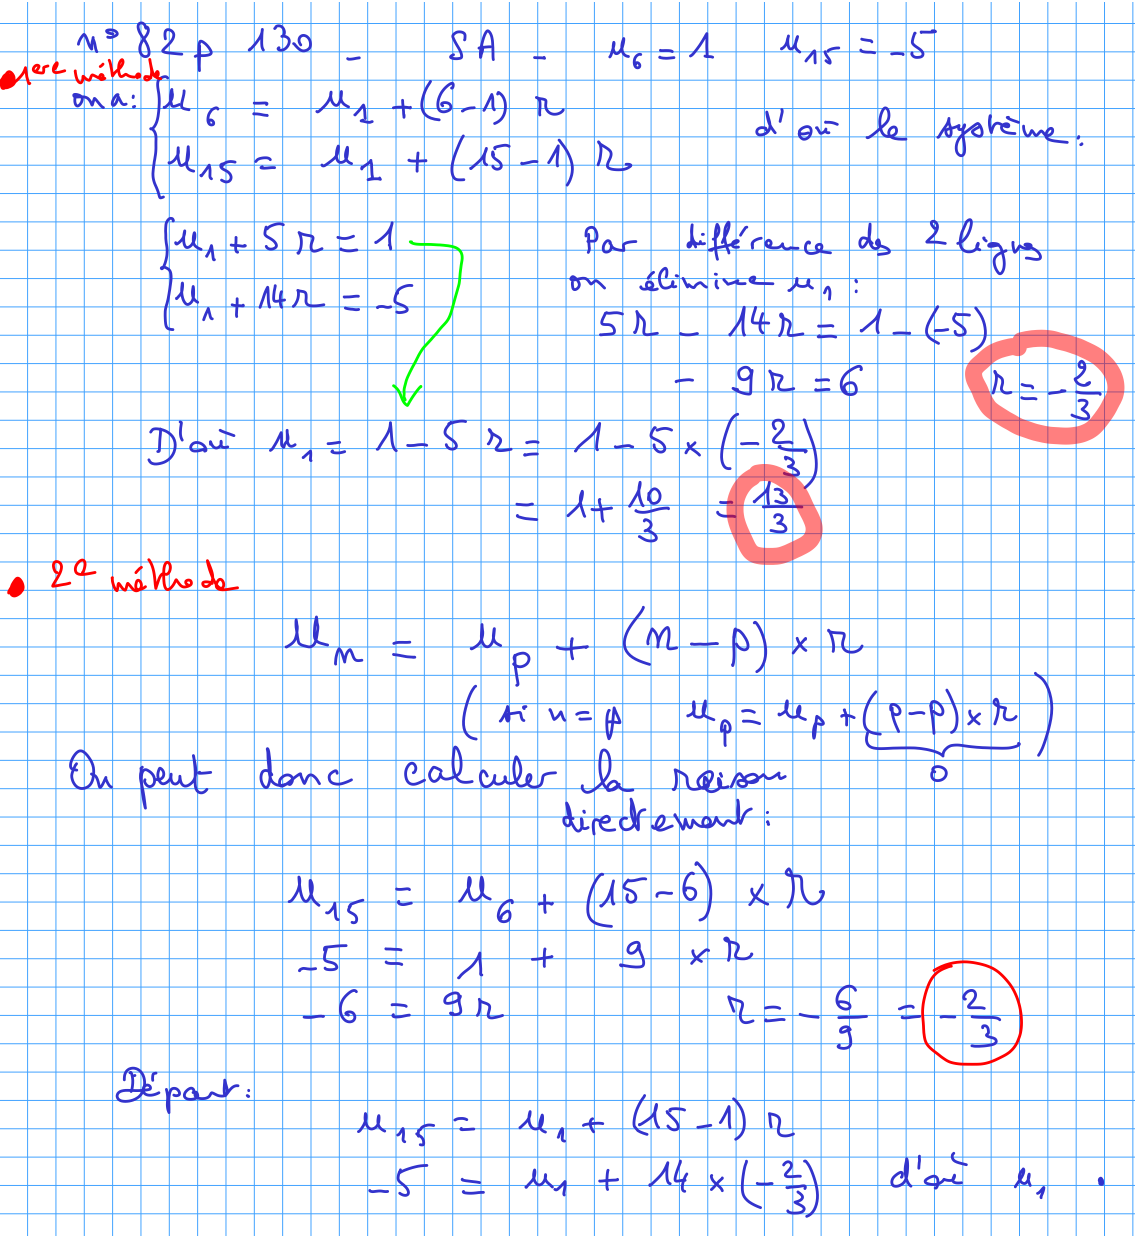 n° 82 p 130 - SA - u₆ = 1 u₁₅ = -5
1ere méthode
on a : { u₆ = u₁ + (6-1) r
u₁₅ = u₁ + (15-1) r
d'où le système :
{ u₁ + 5r = 1
u₁ + 14r = -5
Par différence des 2 lignes
on élimine u₁ :
5r - 14r = 1 - (-5)
- 9r = 6
r = -2/3
D'où u₁ = 1 - 5r = 1 - 5 × (-2/3)
= 1 + 10/3 = 13/3
• 2e méthode
uₙ = uₚ + (n-p) × r
(si n = p uₚ = uₚ + (p-p) × r)
0
On peut donc calculer la raison
directement :
u₁₅ = u₆ + (15-6) × r
-5 = 1 + 9 × r
-6 = 9r r = -6/9 = -2/3
Départ :
u₁₅ = u₁ + (15-1) r
-5 = u₁ + 14 × (-2/3) d'où u₁ .